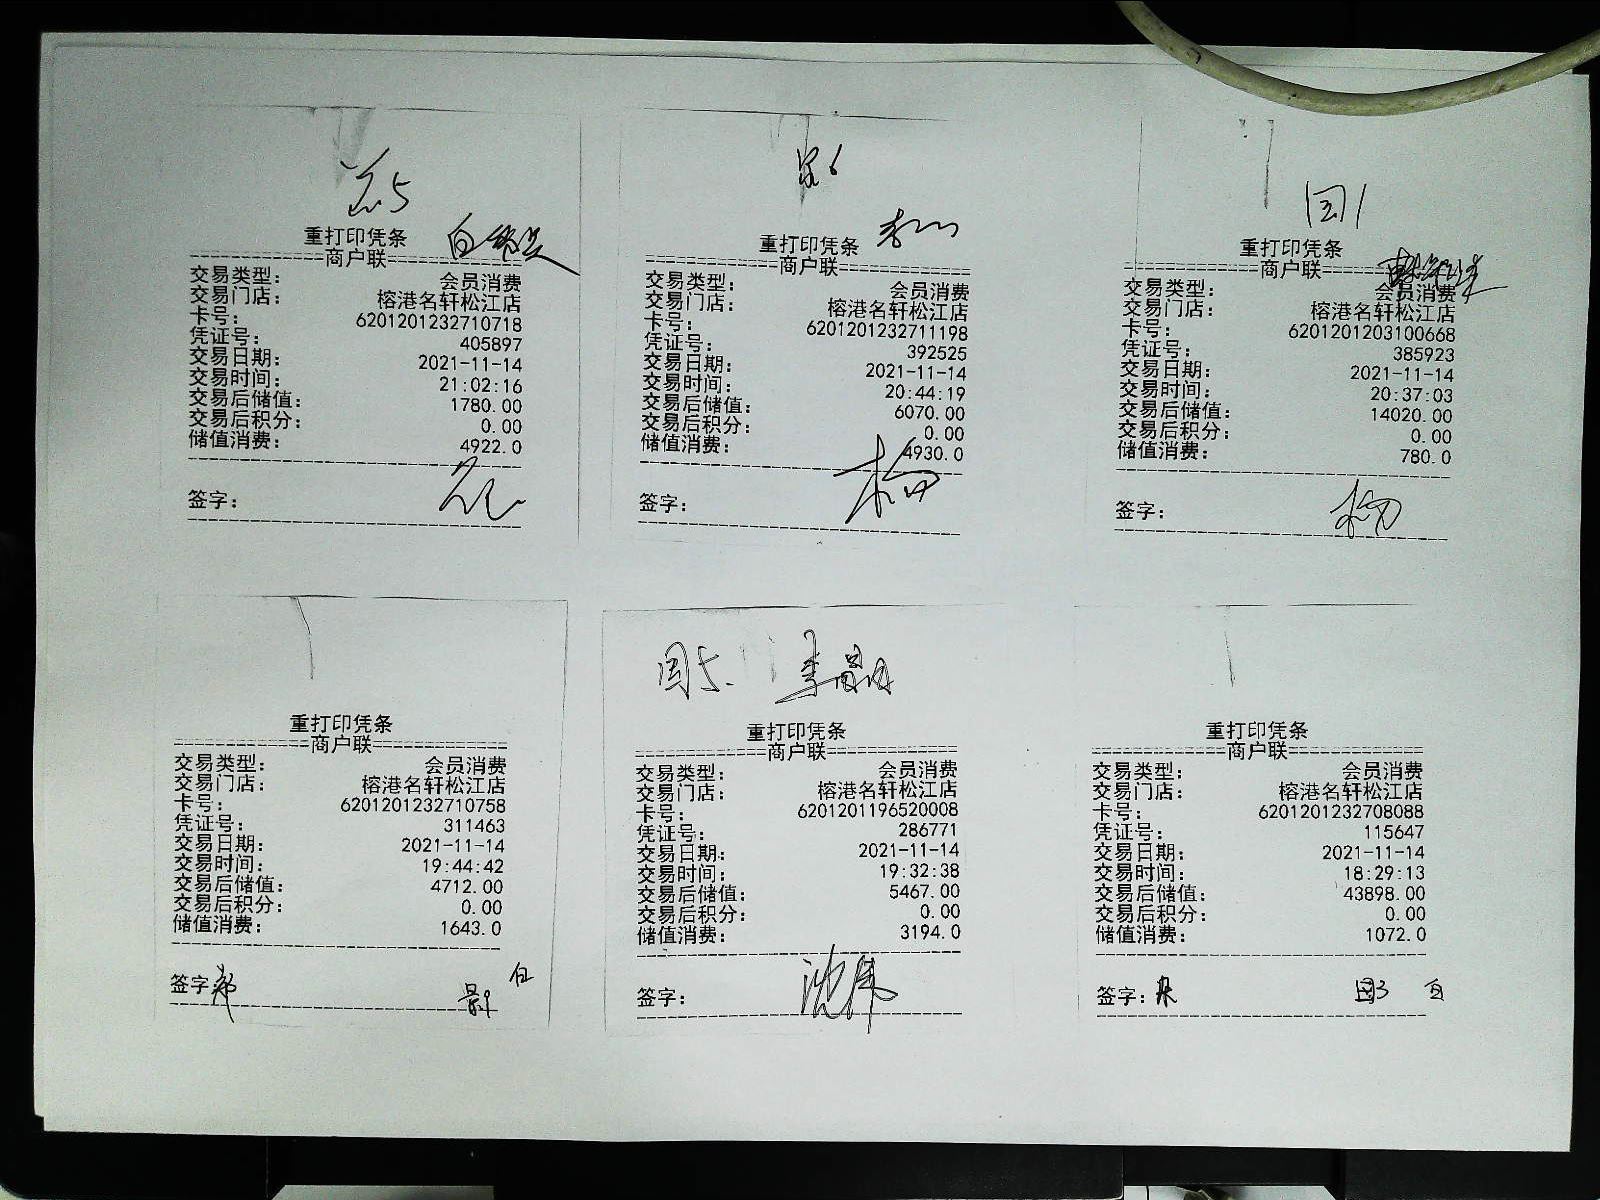 重打印凭条
商户联
交易类型: 会员消费
交易门店: 榕港名轩松江店
卡号: 6201201232710718
凭证号: 405897
交易日期: 2021-11-14
交易时间: 21:02:16
交易后储值: 1780.00
交易后积分: 0.00
储值消费: 4922.0
签字:
重打印凭条
商户联
交易类型: 会员消费
交易门店: 榕港名轩松江店
卡号: 6201201232711198
凭证号: 392525
交易日期: 2021-11-14
交易时间: 20:44:19
交易后储值: 6070.00
交易后积分: 0.00
储值消费: 4930.0
签字:
国1
重打印凭条
商户联
交易类型: 会员消费
交易门店: 榕港名轩松江店
卡号: 6201201203100668
凭证号: 385923
交易日期: 2021-11-14
交易时间: 20:37:03
交易后储值: 14020.00
交易后积分: 0.00
储值消费: 780.0
签字:
重打印凭条
商户联
交易类型: 会员消费
交易门店: 榕港名轩松江店
卡号: 6201201232710758
凭证号: 311463
交易日期: 2021-11-14
交易时间: 19:44:42
交易后储值: 4712.00
交易后积分: 0.00
储值消费: 1643.0
签字:
国5.
重打印凭条
商户联
交易类型: 会员消费
交易门店: 榕港名轩松江店
卡号: 6201201196520008
凭证号: 286771
交易日期: 2021-11-14
交易时间: 19:32:38
交易后储值: 5467.00
交易后积分: 0.00
储值消费: 3194.0
签字: 沈伟
重打印凭条
商户联
交易类型: 会员消费
交易门店: 榕港名轩松江店
卡号: 6201201232708088
凭证号: 115647
交易日期: 2021-11-14
交易时间: 18:29:13
交易后储值: 43898.00
交易后积分: 0.00
储值消费: 1072.0
签字: 国3